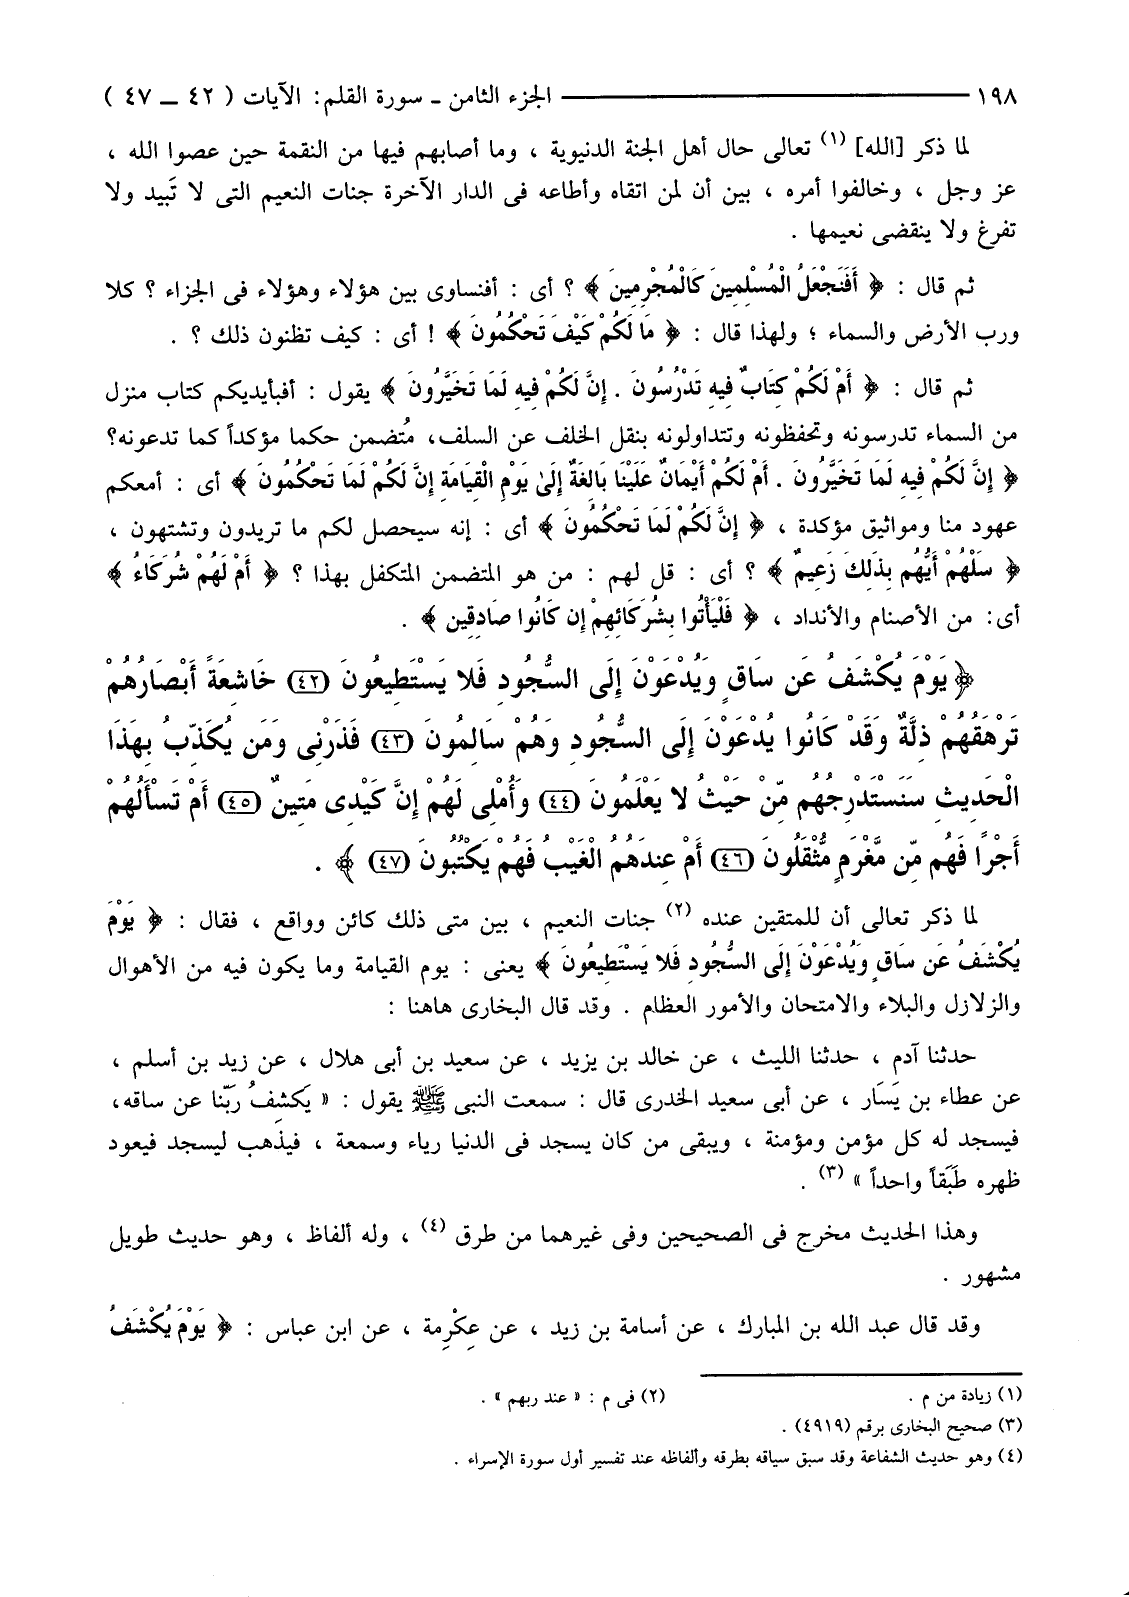 ١٩٨ ــــــــ الجزء الثامن ـ سورة القلم: الآيات ( ٤٢ ــ ٤٧ )
لما ذكر [الله] (١) تعالى حال أهل الجنة الدنيوية ، وما أصابهم فيها من النقمة حين عصوا الله ،
عز وجل ، وخالفوا أمره ، بين أن لمن اتقاه وأطاعه فى الدار الآخرة جنات النعيم التى لا تَبيد ولا
تفرغ ولا ينقضى نعيمها .
ثم قال : ﴿ أَفَنَجْعَلُ الْمُسْلِمِينَ كَالْمُجْرِمِينَ ﴾ ؟ أى : أفنساوى بين هؤلاء وهؤلاء فى الجزاء ؟ كلا
ورب الأرض والسماء ؛ ولهذا قال : ﴿ مَا لَكُمْ كَيْفَ تَحْكُمُونَ ﴾ ! أى : كيف تظنون ذلك ؟ .
ثم قال : ﴿ أَمْ لَكُمْ كِتَابٌ فِيهِ تَدْرُسُونَ . إِنَّ لَكُمْ فِيهِ لَمَا تَخَيَّرُونَ ﴾ يقول : أفبأيديكم كتاب منزل
من السماء تدرسونه وتحفظونه وتتداولونه بنقل الخلف عن السلف، مُتضمن حكما مؤكداً كما تدعونه؟
﴿ إِنَّ لَكُمْ فِيهِ لَمَا تَخَيَّرُونَ . أَمْ لَكُمْ أَيْمَانٌ عَلَيْنَا بَالِغَةٌ إِلَىٰ يَوْمِ الْقِيَامَةِ إِنَّ لَكُمْ لَمَا تَحْكُمُونَ ﴾ أى : أمعكم
عهود منا ومواثيق مؤكدة ، ﴿ إِنَّ لَكُمْ لَمَا تَحْكُمُونَ ﴾ أى : إنه سيحصل لكم ما تريدون وتشتهون ،
﴿ سَلْهُمْ أَيُّهُم بِذَلِكَ زَعِيمٌ ﴾ ؟ أى : قل لهم : من هو المتضمن المتكفل بهذا ؟ ﴿ أَمْ لَهُمْ شُرَكَاءُ ﴾
أى: من الأصنام والأنداد ، ﴿ فَلْيَأْتُوا بِشُرَكَائِهِمْ إِن كَانُوا صَادِقِين ﴾ .
﴿ يَوْمَ يُكْشَفُ عَن سَاقٍ وَيُدْعَوْنَ إِلَى السُّجُودِ فَلا يَسْتَطِيعُونَ (٤٢) خَاشِعَةً أَبْصَارُهُمْ
تَرْهَقُهُمْ ذِلَّةٌ وَقَدْ كَانُوا يُدْعَوْنَ إِلَى السُّجُودِ وَهُمْ سَالِمُونَ (٤٣) فَذَرْنِى وَمَن يُكَذِّبُ بِهَذَا
الْحَدِيثِ سَنَسْتَدْرِجُهُم مِّنْ حَيْثُ لا يَعْلَمُونَ (٤٤) وَأُمْلِى لَهُمْ إِنَّ كَيْدِى مَتِينٌ (٤٥) أَمْ تَسْأَلُهُمْ
أَجْرًا فَهُم مِّن مَّغْرَمٍ مُّثْقَلُونَ (٤٦) أَمْ عِندَهُمُ الْغَيْبُ فَهُمْ يَكْتُبُونَ (٤٧) ﴾ .
لما ذكر تعالى أن للمتقين عنده (٢) جنات النعيم ، بين متى ذلك كائن وواقع ، فقال : ﴿ يَوْمَ
يُكْشَفُ عَن سَاقٍ وَيُدْعَوْنَ إِلَى السُّجُودِ فَلا يَسْتَطِيعُونَ ﴾ يعنى : يوم القيامة وما يكون فيه من الأهوال
والزلازل والبلاء والامتحان والأمور العظام . وقد قال البخارى هاهنا :
حدثنا آدم ، حدثنا الليث ، عن خالد بن يزيد ، عن سعيد بن أبى هلال ، عن زيد بن أسلم ،
عن عطاء بن يَسَار ، عن أبى سعيد الخدرى قال : سمعت النبى ﷺ يقول : « يَكشِفُ رَبّنا عن ساقه،
فيسجد له كل مؤمن ومؤمنة ، ويبقى من كان يسجد فى الدنيا رياء وسمعة ، فيذْهب ليسجد فيعود
ظهره طَبَقاً واحداً » (٣) .
وهذا الحديث مخرج فى الصحيحين وفى غيرهما من طرق (٤) ، وله ألفاظ ، وهو حديث طويل
مشهور .
وقد قال عبد الله بن المبارك ، عن أسامة بن زيد ، عن عِكْرِمة ، عن ابن عباس : ﴿ يَوْمَ يُكْشَفُ
(١) زيادة من م . (٢) فى م : « عند ربهم » .
(٣) صحيح البخارى برقم (٤٩١٩) .
(٤) وهو حديث الشفاعة وقد سبق سياقه بطرقه وألفاظه عند تفسير أول سورة الإسراء .